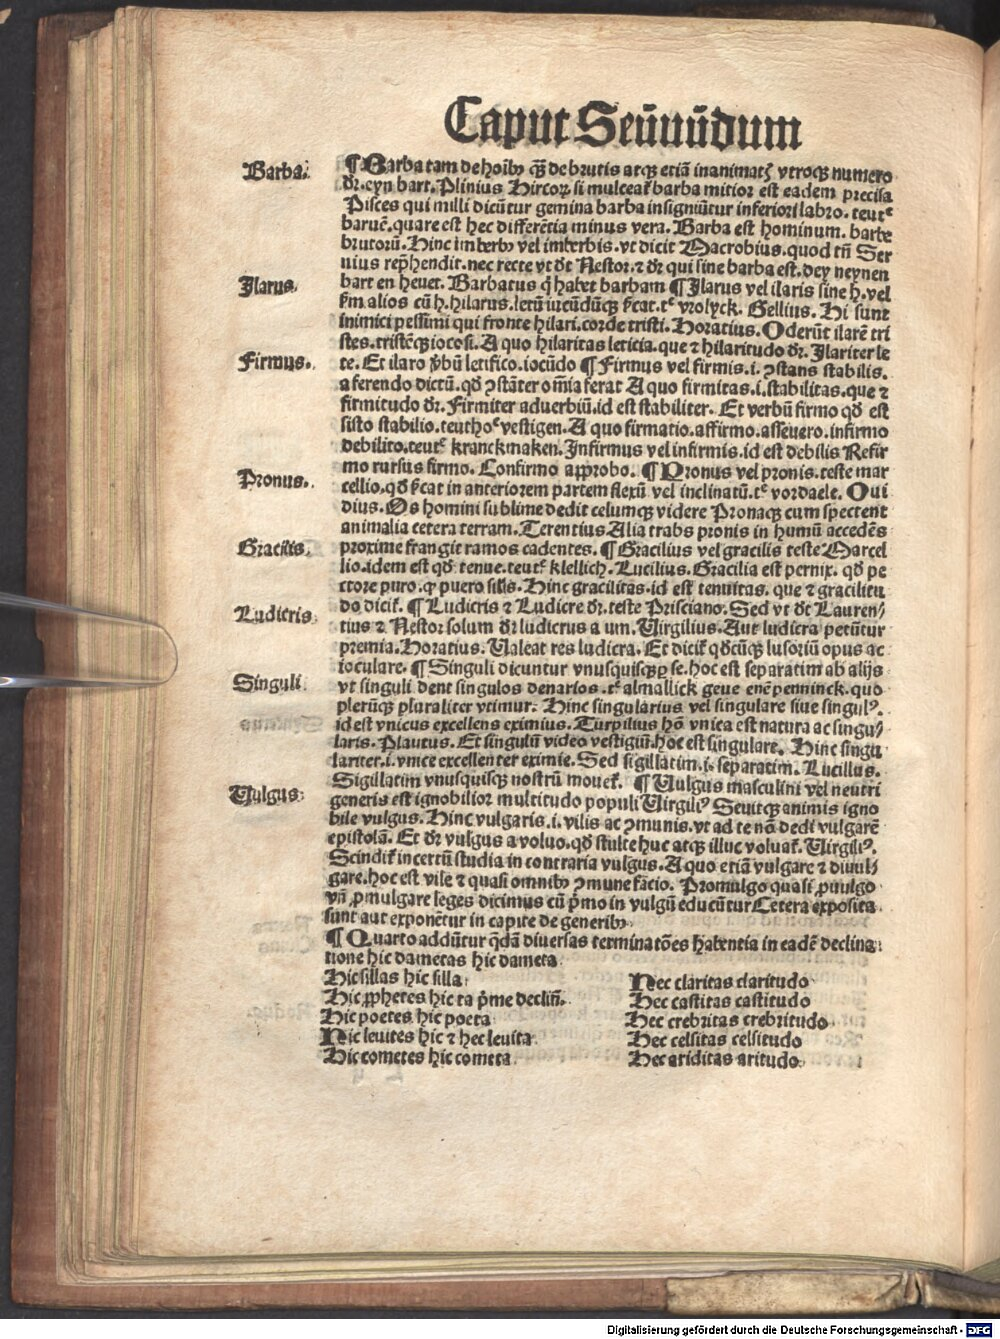 Caput Seũuũdum
Barba.
¶ Barba tam de hoĩbꝰ qͣꝫ de brutis atqꝫ etiã inanimatꝭ vtroqꝫ numero
dr̃. eyn bart. Plinius Hircoꝝ si mulceat̃ barba mitior est eadem precisa
Pisces qui milli dicũtur gemina barba insigniũtur inferiori labro. teutͨ
baruẽ. quare est hec differẽtia minus vera. Barba est hominum. barbe
brutorũ. Hinc imberbꝰ vel imberbis. vt dicit Macrobius. quod tñ Ser
uius rep̃hendit. nec recte vt dt̃ Nestor. ⁊ dr̃ qui sine barba est. dey neynen
bart en heuet. Barbatus q̇ habet barbam ¶ Ilarus vel ilaris sine h. vel
Ilarus.
ẜm alios cũ h. hilarus. letũ iucũdũqꝫ ẜcat. tͨ vrolyck. Gellius. Hi sunt
inimici pessimi qui fronte hilari. corde tristi. Horatius. Oderũt ilarẽ tri
stes. tristẽqꝫ iocosi. A quo hilaritas leticia. que ⁊ hilaritudo dr̃. Ilariter le
Firmus.
te. Et ilaro v̾bũ letifico. iocũdo ¶ Firmus vel firmis. i. ꝯstans stabilis.
a ferendo dictũ. qd̾ ꝯstãter om̃ia ferat A quo firmitas. i. stabilitas. que ⁊
firmitudo dr̃. Firmiter aduerbiũ. id est stabiliter. Et verbũ firmo qd̾ est
sisto stabilio. teuthoͨ vestigen. A quo firmatio. affirmo. asseuero. infirmo
debilito. teutͨ kranckmaken. Infirmus vel infirmis. id est debilis Refir
mo rursus firmo. Confirmo approbo. ¶ Pronus vel pronis. teste mar
Pronus.
cellio. qd̾ ẜcat in anteriorem partem flexũ vel inclinatũ. tͨ vordaele. Oui
dius. Os homini sublime dedit celumqꝫ videre Pronaqꝫ cum spectent
animalia cetera terram. Terentius Alia trabs pronis in humũ accedẽs
Gracilis.
proxime frangit ramos cadentes. ¶ Gracilius vel gracilis teste Marcel
lio. idem est qd̾ tenue. teutͨ klellich. Lucilius. Gracilia est pernix. qd̾ pe
ctore puro. ꝙ puero siĩlis. Hinc gracilitas. id est tenuitas. que ⁊ gracilitu
Ludicris.
do dicit̃. ¶ Ludicris ⁊ Ludicre dr̃. teste Prisciano. Sed vt dt̃ Lauren/
tius ⁊ Nestor solum dr̃ ludicrus a um. Virgilius. Aut ludicra petũtur
premia. Horatius. Valeat res ludicra. Et dicit̃ qd̾cũqꝫ lusoriũ opus ac
ioculare. ¶ Singuli dicuntur vnusquisqꝫ ꝑ se. hoc est separatim ab alijs
Singuli
vt singuli dent singulos denarios. tͨ almallick geue enẽ penninck. quo
plerũqꝫ pluraliter vtimur. Hinc singularius vel singulare siue singulꝰ.
id est vnicus excellens eximius. Turpilius hõ vnica est natura ac singu/
laris. Plautus. Et singulũ video vestigiũ. hoc est singulare. Hinc singu
lariter. i. vnice excellenter eximie. Sed sigillatim. i. separatim. Lucillus.
Sigillatim vnusquisqꝫ nostrũ mouet̃. ¶ Vulgus masculini vel neutri
Vulgus
generis est ignobilior multitudo populi Virgiliꝰ Seuitqꝫ animis igno
bile vulgus. Hinc vulgaris. i. vilis ac ꝯmunis. vt ad te nõ dedi vulgarẽ
epistolã. Et dr̃ vulgus a voluo. qd̾ stulte huc atqꝫ illuc voluat̃. Virgiliꝰ.
Scindit̃ incertũ studia in contraria vulgus. A quo etiã vulgare ⁊ diuul/
gare. hoc est vile ⁊ quasi omnibꝰ ꝯmune facio. Promulgo quasi ꝓuulgo
vñ ꝓmulgare leges dicimus cũ p̃mo in vulgũ educũtur Cetera exposita
sunt aut exponẽtur in capite de generibꝰ
¶ Quarto addũtur q̃dã diuersas terminatões habentia in eadẽ declina
tione hic dametas hic dameta
Hic sillas hic silla
Hic ꝓphetes hic ta p̃me declin̄.
Hic poetes hic poeta
Hic leuites hic ⁊ hec leuita
Hic cometes hic cometa
Hec claritas claritudo
Hec castitas castitudo
Hec crebritas crebritudo
Hec celsitas celsitudo
Hec ariditas aritudo
Digitalisierung gefördert durch die Deutsche Forschungsgemeinschaft - DFG